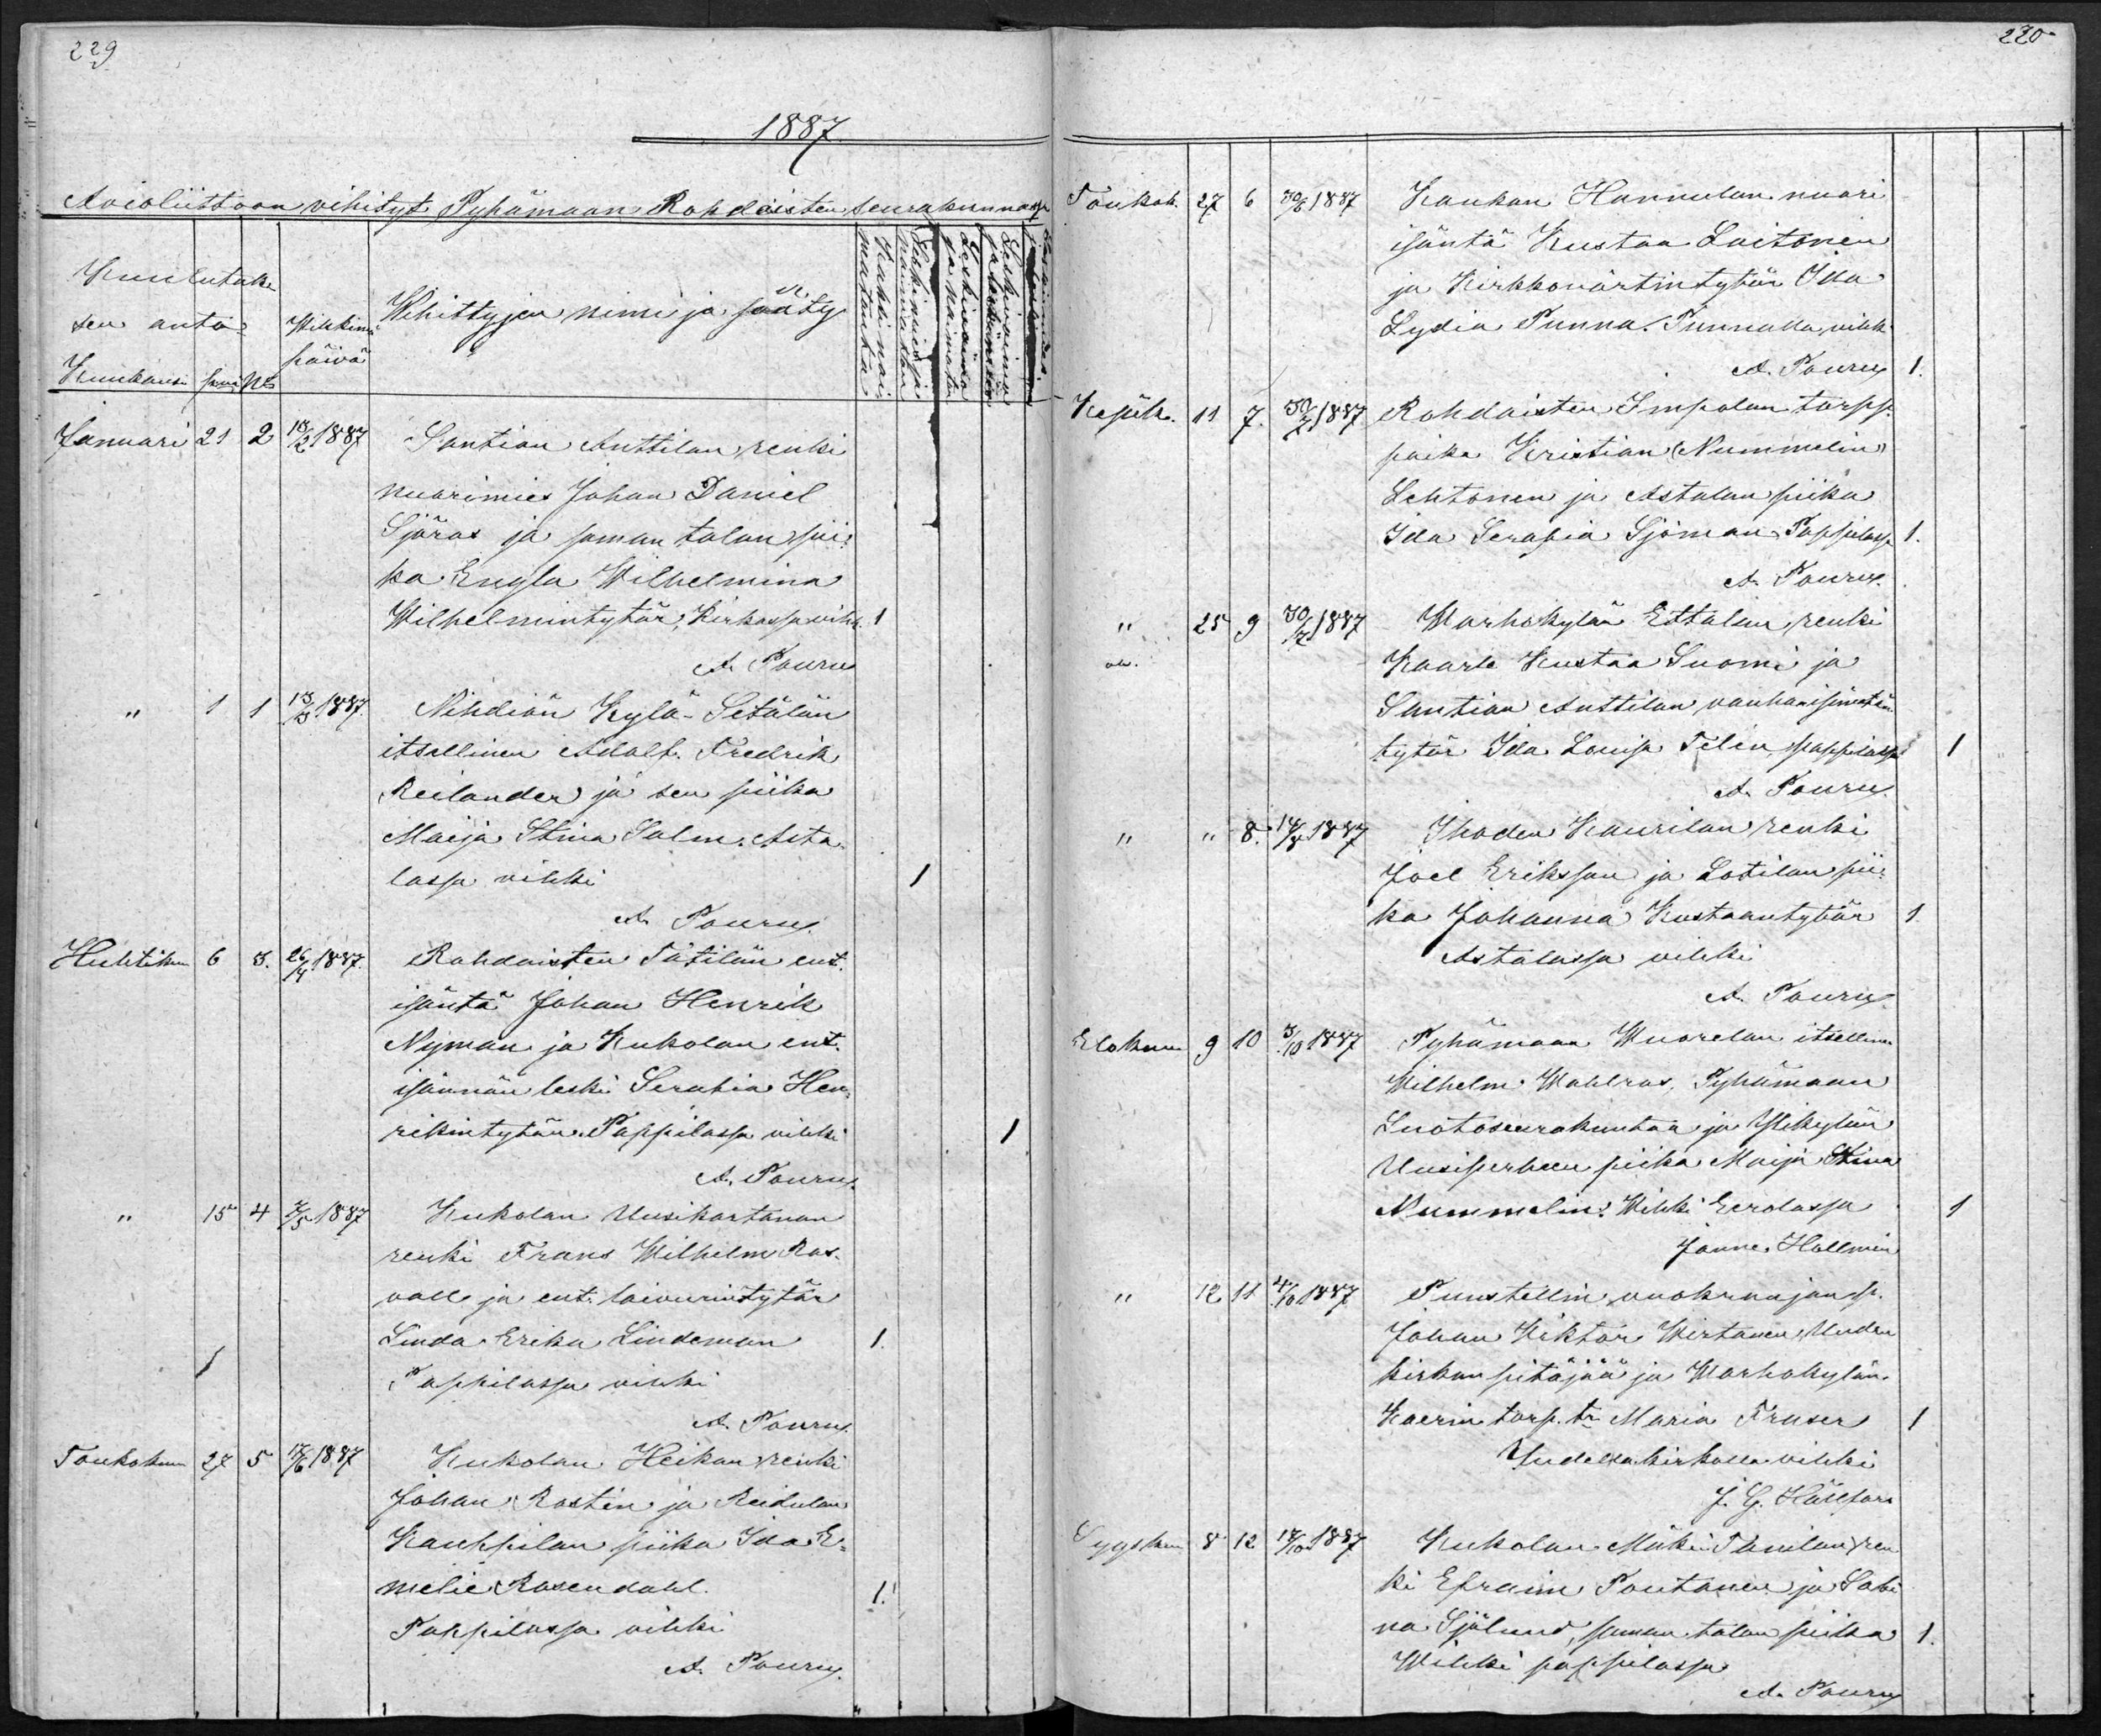 229
1887
Avioliittoon vihityt Pyhämaan Rohdaisten seurakunnassa
Kuulutuk-
sen anto-
Kuukausi päivä No
Vihkimä
päivä
Wihittyjen nimi ja sääty
Januari 21 2 18/2 1887 Santian Anttilan renki
nuorimies Johan Daniel
Sjöros ja saman talon pii-
ka Engla Wilhelmina
Wilhelmintytär, Kirkossa vihk. 1
A. Pouru
" 1 1 13/3 1887. Nihdiön Kylä-Setälän
itsellinen Adolf Fredrik
Reilander ja sen piika
Maija Stina Salm. Asta-
lassa vihki 1
A. Pouru.
Huhtikuu 6 3. 26/4 1887. Rohdaisten Tätilän ent.
isäntä Johan Henrik
Nyman ja Kukolan ent.
isännän leski Serafia Hen-
rikintytär. Pappilassa vihki 1
A. Pouru.
" 15 4 7/5 1887 Kukolan Uusikartanon
renki Frans Wilhelm Ros-
vall ja ent. laivurintytär
Linda Erika Lindeman 1.
Pappilassa vihki
A. Pouru.
Toukokuu 27 5 17/6 1887 Kukolan Heikan renki
Johan Rostin ja Reidulan
Kauppilan piika Ida E-
melie Rosendahl. 1.
Pappilassa vihki
A. Pouru.
220
Toukok. 27 6 30/6 1887 Kaukan Hannulan nuori
isäntä Kustaa Laitonen
ja Kirkkovärtintytär Ida
Lydia Punna. Punnalla vihk.
A. Pouru 1.
Kesäk. 11 7. 30/7 1887 Rohdaisten Impolan torpp.
poika Kristian (Nummelin)
Lehtonen ja Astalan piika
Ida Serafia Sjöman. Pappilassa 1.
A. Pouru.
" 25 9 30/7 1887 Warhokylän Ettalan renki
Kaarle Kustaa Suomi ja
Santian Anttilan vanhanisännän
tytär Ida Lovisa Felin, pappilassa 1
A. Pouru.
" " 8. 14/8 1887 Ihoden Kaurilan renki
Joel Eriksson ja Lotilan pii-
ka Johanna Kustaantytär 1.
Astalassa vihki
A. Pouru
Elokuu 9 10 3/10 1887 Pyhämaan Wuorelan itsellinen
Wilhelm Wahlros, Pyhämaan
Luotoseurakuntaa ja Ylikylän
Uusiperheen piika Maija Stina
Nummelin. Wihki Eerolassa 1
Janne Hallmen
" 12 11 4/10 1887 Punstellin vuokraajan p.
Johan Wiktor Wirtanen, Uuden
kirkon pitäjää ja Warhokylän
Kaerin torp. tr Maria Fraser 1
Uudellakirkolla vihki
J. G. Hällfors
Syyskuu 8 12 18/10 1887 Kukolan Mäki-Tanilan ren
ki Efraim Poutanen ja Sabi
na Sjölund, saman talon piika 1.
Wihki pappilassa
A. Pouru